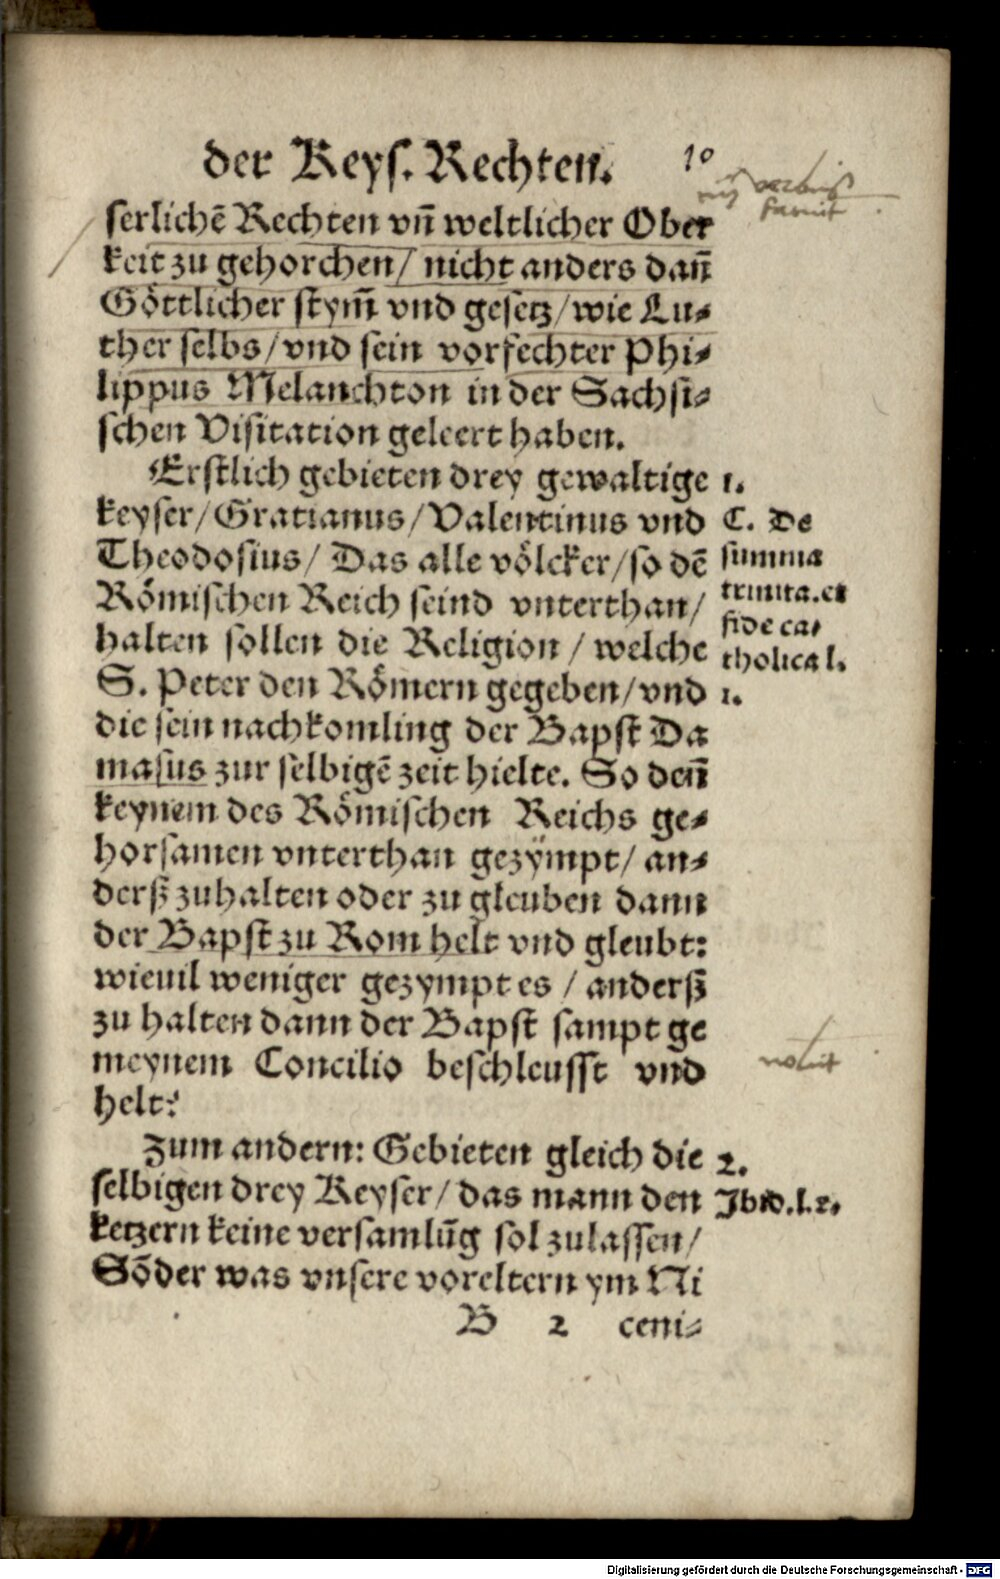 der Keys. Rechten. 10
serlichē Rechten vn̄ weltlicher Ober
keit zu gehorchen/ nicht anders dan̄
Göttlicher stym̄ vnd gesetz/ wie Lu⸗
ther selbs/ vnd sein vorfechter Phi⸗
lippus Melanchton in der Sachsi⸗
schen Visitation geleert haben.
Erstlich gebieten drey gewaltige
keyser/ Gratianus/ Valentinus vnd
Theodosius/ Das alle völcker/ so dē
Römischen Reich seind vnterthan/
halten sollen die Religion/ welche
S. Peter den Römern gegeben/ vnd
die sein nachkomling der Bapst Da
masus zur selbigē zeit hielte. So den̄
keynem des Römischen Reichs ge⸗
horsamen vnterthan gezÿmpt/ an⸗
derß zuhalten oder zu gleuben dann
der Bapst zu Rom helt vnd gleubt:
wieuil weniger gezympt es / anderß
zu halten dann der Bapst sampt ge
meynem Concilio beschleusst vnd
helt?
1.
C. De
summa
trinita. et
fide ca⸗
tholica l.
1.
noluit
Zum andern: Gebieten gleich die
selbigen drey Keyser/ das mann den
ketzern keine versamlūg sol zulassen/
Sōder was vnsere voreltern ym Ni
2.
Ibid. l. 2.
B 2 ceni⸗
Digitalisierung gefördert durch die Deutsche Forschungsgemeinschaft - DFG